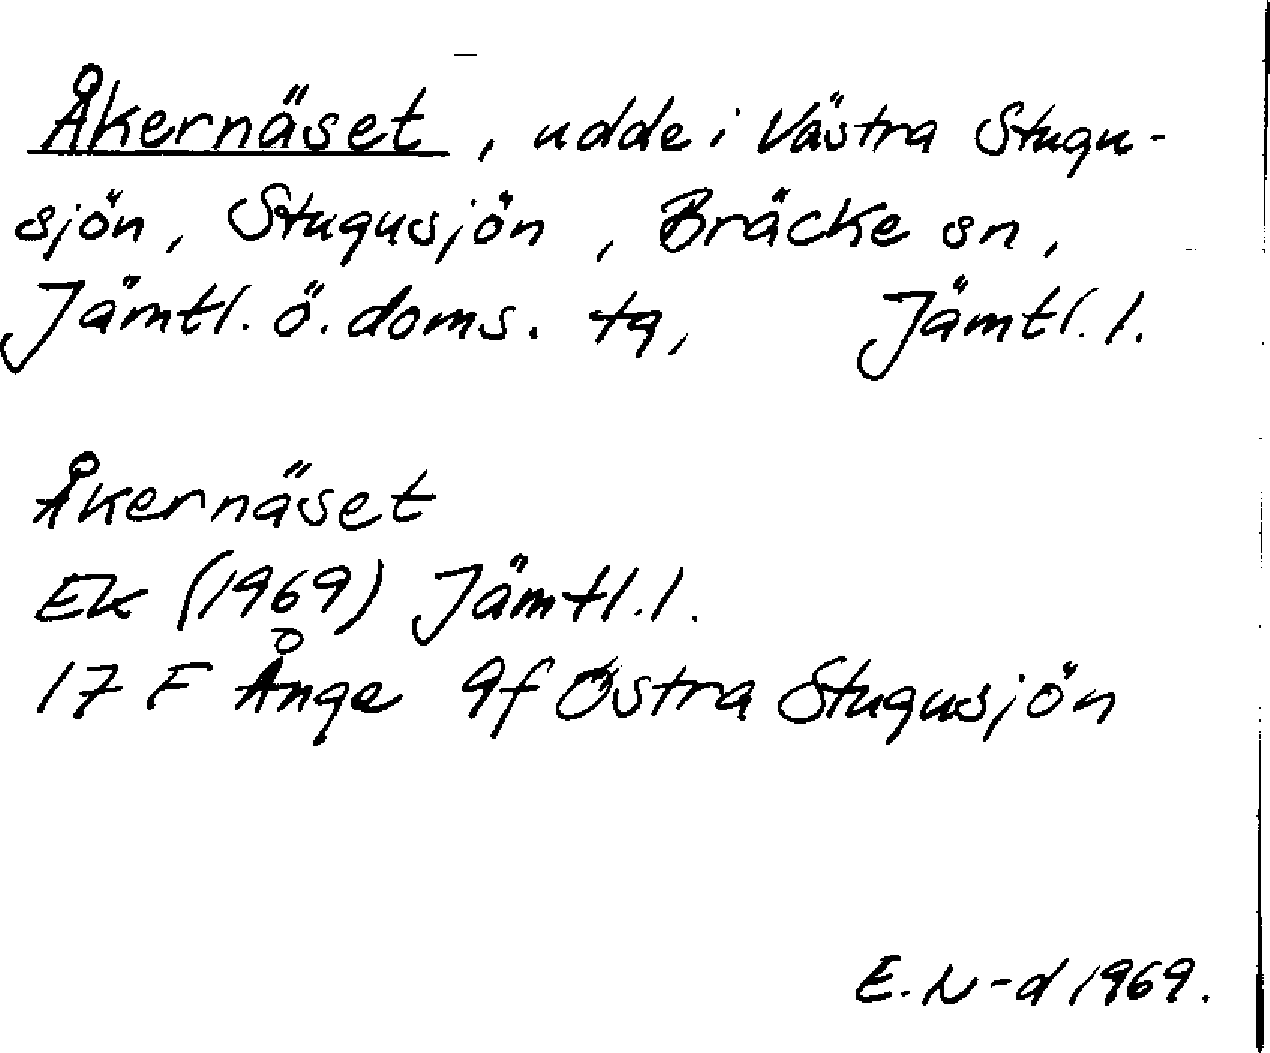 Åkernäset, udde i Västra Stugu-
sjön, Stugusjön, Bräcke sn,
Jämtl. ö. doms. tg, Jämtl. l.
Åkernäset
Ek (1969) Jämtl. l.
17 F Ånge 9f Östra Stugusjön
E. N-d 1969.